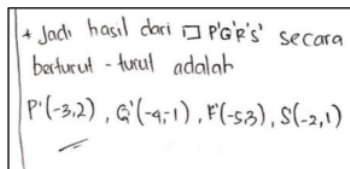 * Jadi hasil dari □ P'Q'R'S' secara
berturut - turut adalah
P'(-3,2), Q'(-4,-1), R'(-5,3), S(-2,1)